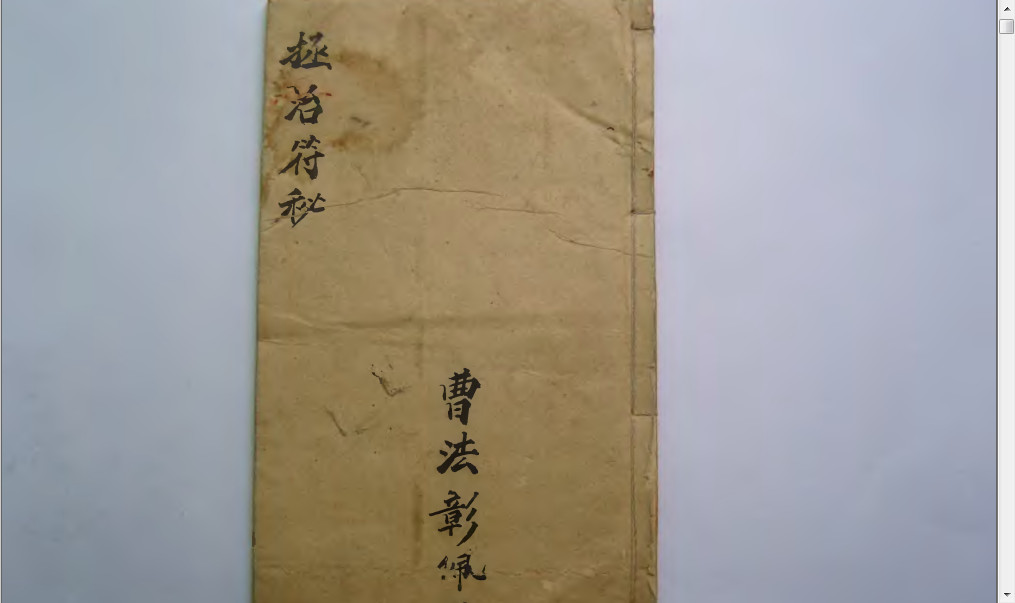 拯治符秘
曹法彰佩